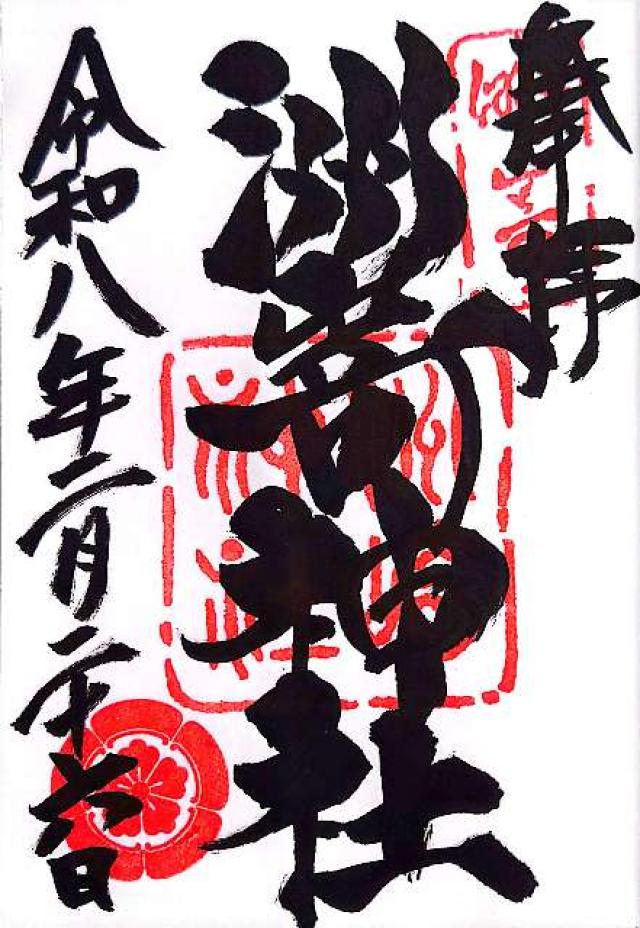 奉拝
洲嵜神社
令和八年二月二十六日